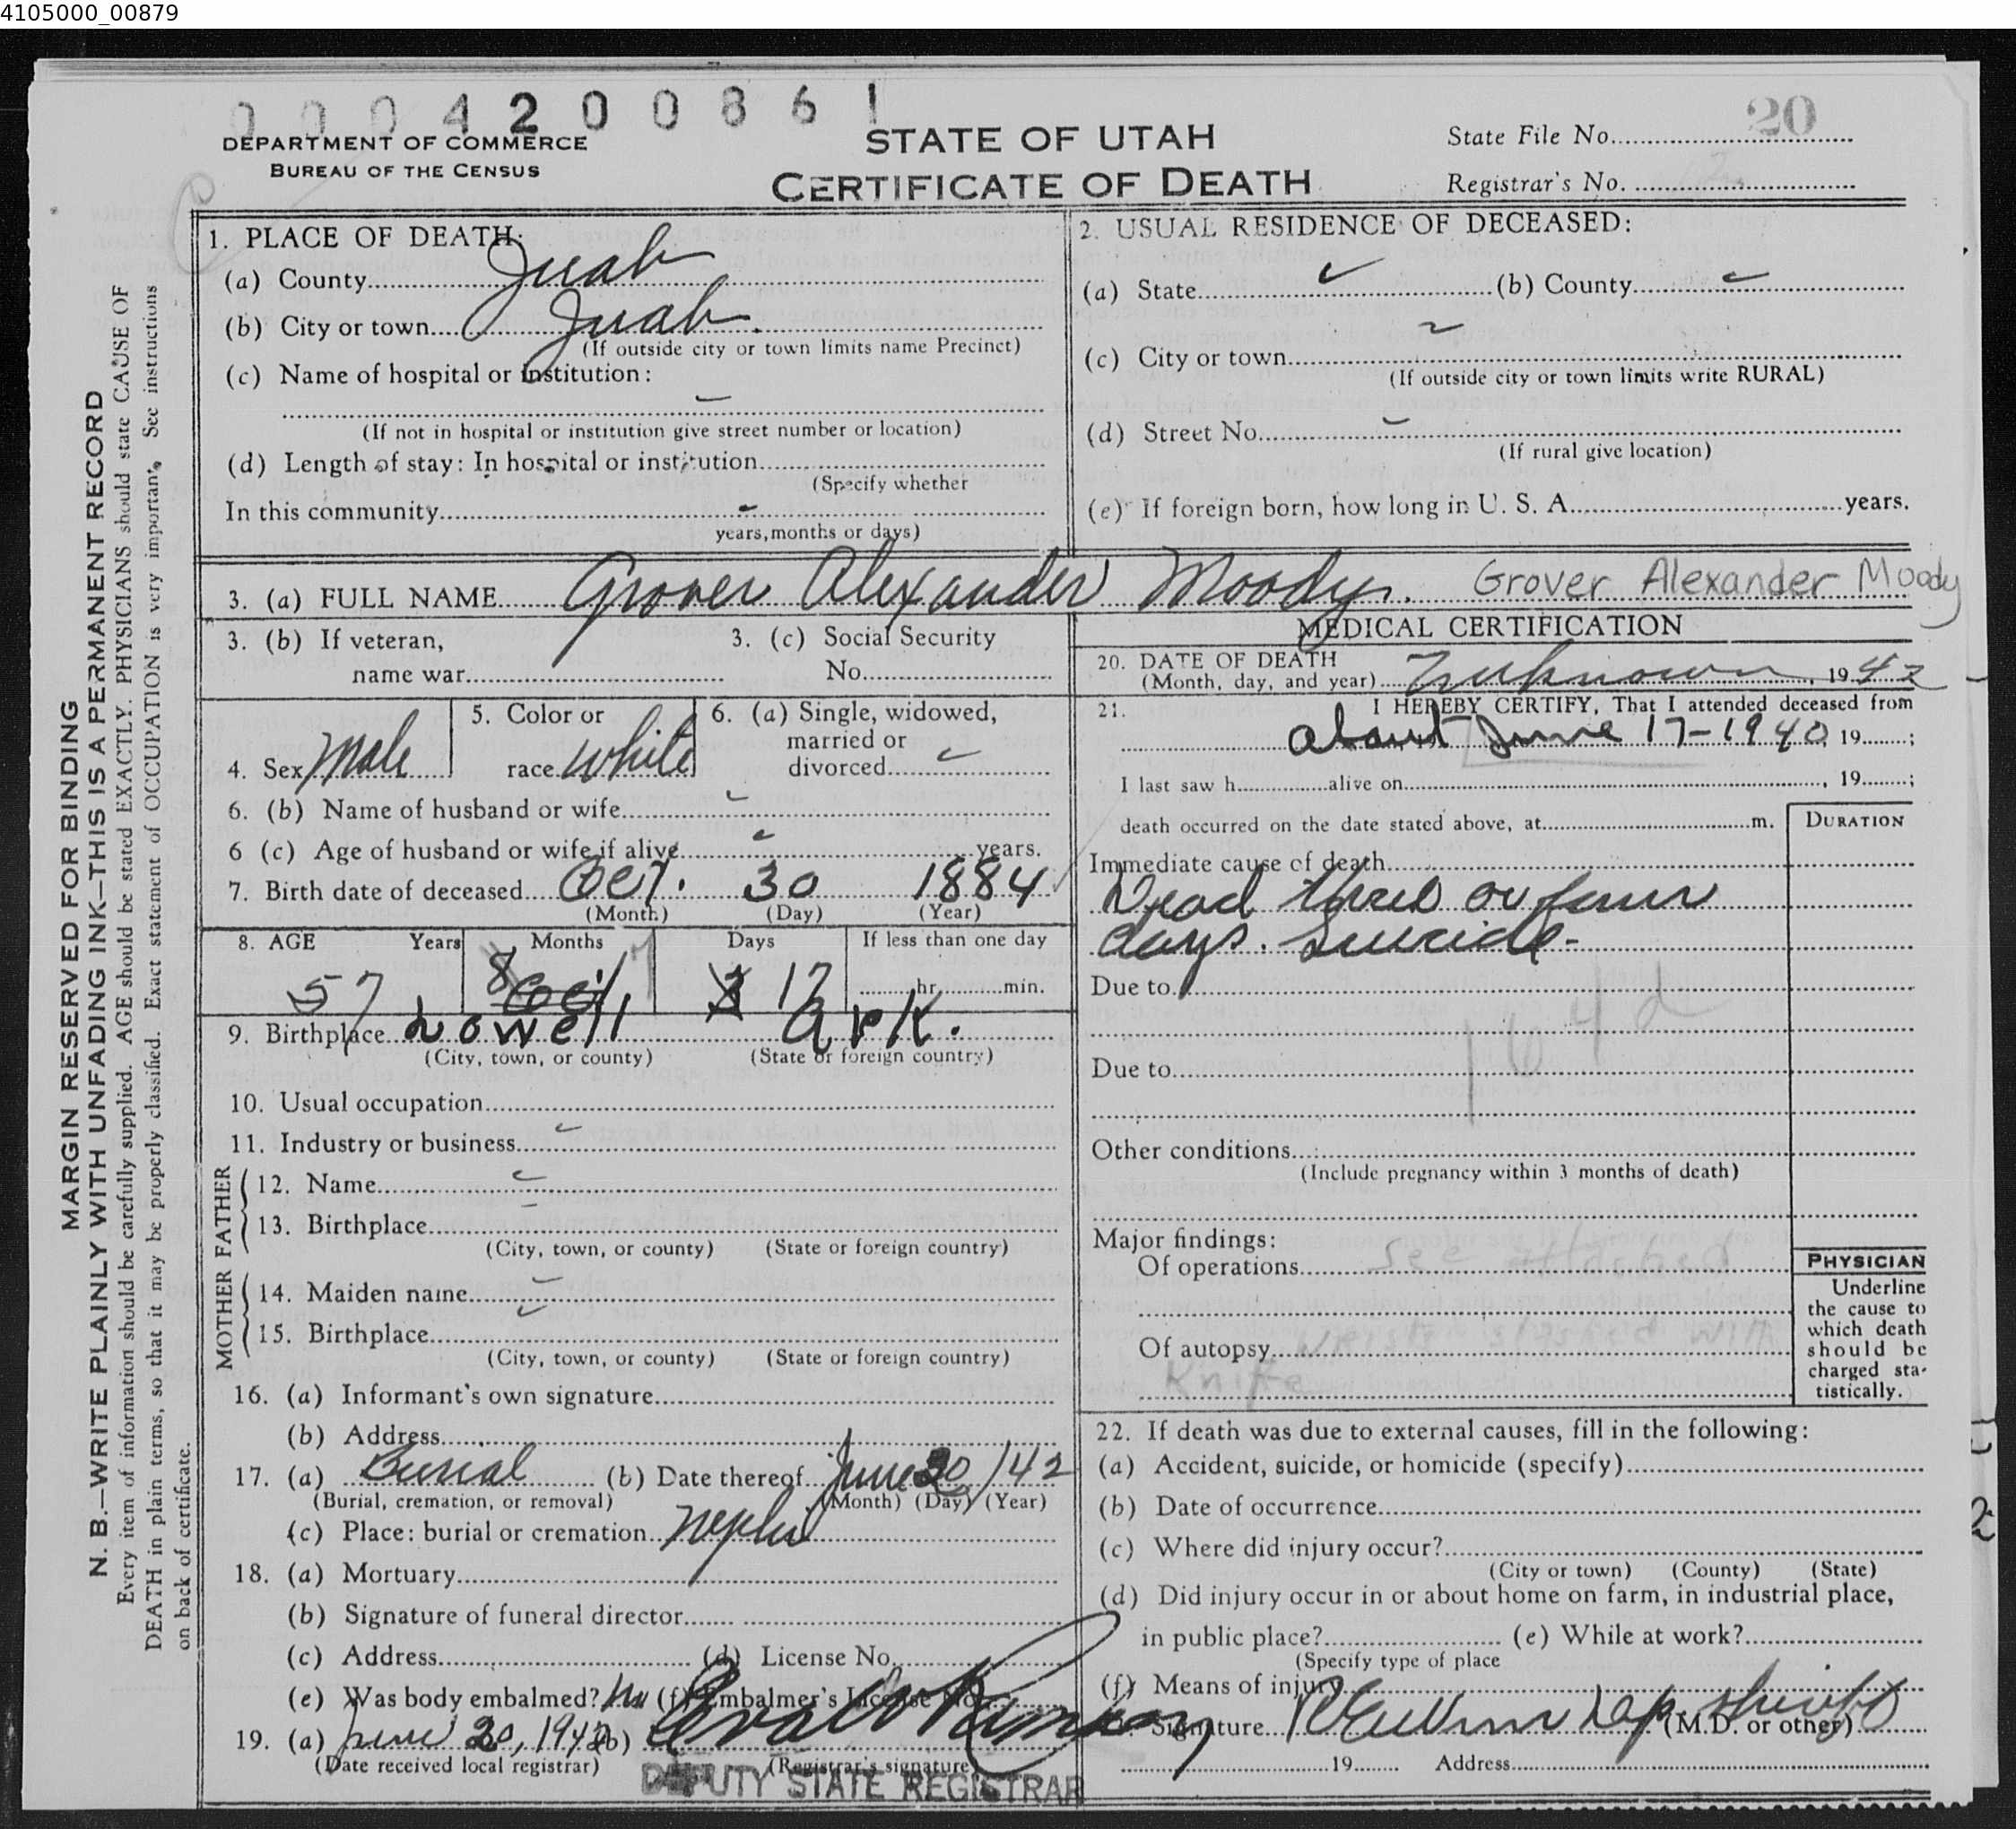 4105000_00879
0004200861
20
DEPARTMENT OF COMMERCE
BUREAU OF THE CENSUS
STATE OF UTAH
CERTIFICATE OF DEATH
State File No.
Registrar's No.
MARGIN RESERVED FOR BINDING
N. B.—WRITE PLAINLY WITH UNFADING INK—THIS IS A PERMANENT RECORD
Every item of information should be carefully supplied. AGE should be stated EXACTLY. PHYSICIANS should state CAUSE OF
DEATH in plain terms, so that it may be properly classified. Exact statement of OCCUPATION is very important. See instructions
on back of certificate.
1. PLACE OF DEATH:
(a) County Juab
(b) City or town Juab.
(If outside city or town limits name Precinct)
(c) Name of hospital or institution:
(If not in hospital or institution give street number or location)
(d) Length of stay: In hospital or institution
(Specify whether
In this community
years, months or days)
2. USUAL RESIDENCE OF DECEASED:
(a) State (b) County
(c) City or town
(If outside city or town limits write RURAL)
(d) Street No.
(If rural give location)
(e) If foreign born, how long in U. S. A. years.
3. (a) FULL NAME Grover Alexander Moody. Grover Alexander Moody
3. (b) If veteran,
name war
3. (c) Social Security
No.
4. Sex Male
5. Color or
race White
6. (a) Single, widowed,
married or
divorced
6. (b) Name of husband or wife
6 (c) Age of husband or wife if alive years.
7. Birth date of deceased Oct. 30 1884
(Month) (Day) (Year)
8. AGE Years Months Days If less than one day
57 8 Oct 7 17 hr. min.
9. Birthplace Lowell Ark.
(City, town, or county) (State or foreign country)
10. Usual occupation
11. Industry or business
FATHER
12. Name
13. Birthplace
(City, town, or county) (State or foreign country)
MOTHER
14. Maiden name
15. Birthplace
(City, town, or county) (State or foreign country)
16. (a) Informant's own signature
(b) Address
17. (a) Burial (b) Date thereof June 20/42
(Burial, cremation, or removal) (Month) (Day) (Year)
(c) Place: burial or cremation Nephi
18. (a) Mortuary
(b) Signature of funeral director
(c) Address (d) License No.
(e) Was body embalmed? No (f) Embalmer's License No.
19. (a) June 20, 1942 (b)
(Date received local registrar) (Registrar's signature)
DEPUTY STATE REGISTRAR
MEDICAL CERTIFICATION
20. DATE OF DEATH
(Month, day, and year) Unknown, 1942
21. I HEREBY CERTIFY, That I attended deceased from
about June 17-1940, 19 ;
I last saw h alive on , 19 ;
death occurred on the date stated above, at m.
DURATION
Immediate cause of death
Dead three or four
days. Suicide-
Due to
164d
Due to
Other conditions
(Include pregnancy within 3 months of death)
Major findings:
Of operations See attached
Of autopsy wrists slashed with
Knife
PHYSICIAN
Underline
the cause to
which death
should be
charged sta-
tistically.
22. If death was due to external causes, fill in the following:
(a) Accident, suicide, or homicide (specify)
(b) Date of occurrence
(c) Where did injury occur?
(City or town) (County) (State)
(d) Did injury occur in or about home on farm, in industrial place,
in public place? (e) While at work?
(Specify type of place
(f) Means of injury
Signature Dep. Sheriff (M.D. or other)
19 Address